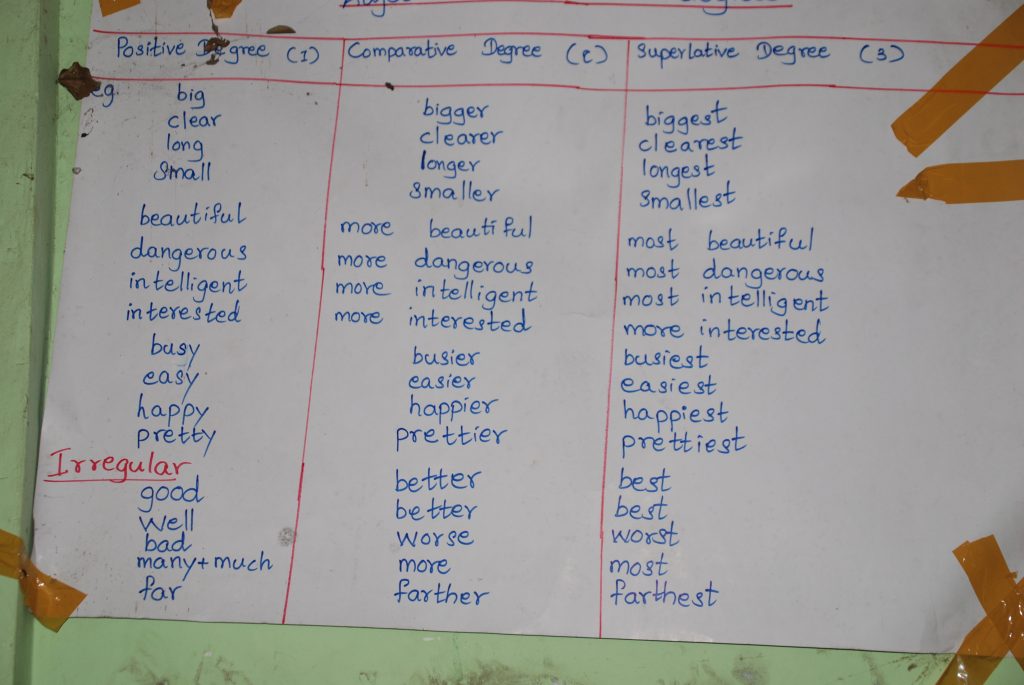 Positive Degree (1) Comparative Degree (2) Superlative Degree (3)
eg. big bigger biggest
clear clearer clearest
long longer longest
small smaller smallest
beautiful more beautiful most beautiful
dangerous more dangerous most dangerous
intelligent more intelligent most intelligent
interested more interested more interested
busy busier busiest
easy easier easiest
happy happier happiest
pretty prettier prettiest
Irregular
good better best
well better best
bad worse worst
many+much more most
far farther farthest